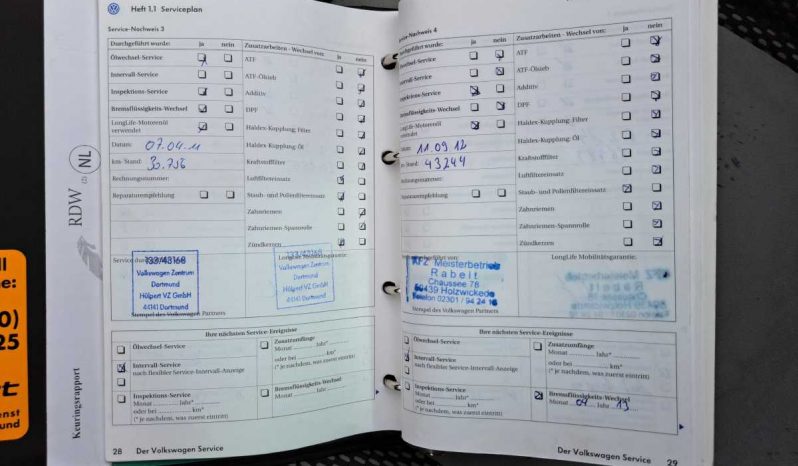 RDW
NL
Keuringsrapport
Heft 1.1 Serviceplan
Service-Nachweis 3
Durchgeführt wurde: ja nein
Ölwechsel-Service
Intervall-Service
Inspektions-Service
Bremsflüssigkeits-Wechsel
LongLife-Motorenöl
verwendet
Datum: 07.04.11
km-Stand: 30.756
Rechnungsnummer:
Reparaturempfehlung
Zusatzarbeiten - Wechsel von: ja nein
ATF
ATF-Ölsieb
Additiv
DPF
Haldex-Kupplung: Filter
Haldex-Kupplung: Öl
Kraftstofffilter
Luftfiltereinsatz
Staub- und Pollenfiltereinsatz
Zahnriemen
Zahnriemen-Spannrolle
Zündkerzen
LongLife Mobilitätsgarantie:
733/43168
Volkswagen Zentrum
Dortmund
Hülpert VZ GmbH
44141 Dortmund
Stempel des Volkswagen Partners
733/43168
Volkswagen Zentrum
Dortmund
Hülpert VZ GmbH
44141 Dortmund
Ihre nächsten Service-Ereignisse
Ölwechsel-Service
Intervall-Service
nach flexibler Service-Intervall-Anzeige
Inspektions-Service
Monat Jahr*
oder bei km*
(* je nachdem, was zuerst eintritt)
Zusatzumfänge
Monat Jahr*
oder bei km*
(* je nachdem, was zuerst eintritt)
Bremsflüssigkeits-Wechsel
Monat Jahr
28 Der Volkswagen Service
Service-Nachweis 4
Durchgeführt wurde: ja nein
Ölwechsel-Service
Intervall-Service
Inspektions-Service
Bremsflüssigkeits-Wechsel
LongLife-Motorenöl
verwendet
Datum: 11.09.12
km-Stand: 43244
Rechnungsnummer:
Reparaturempfehlung
Zusatzarbeiten - Wechsel von: ja nein
ATF
ATF-Ölsieb
Additiv
DPF
Haldex-Kupplung: Filter
Haldex-Kupplung: Öl
Kraftstofffilter
Luftfiltereinsatz
Staub- und Pollenfiltereinsatz
Zahnriemen
Zahnriemen-Spannrolle
Zündkerzen
LongLife Mobilitätsgarantie:
KFZ Meisterbetrieb
Rabeit
Chaussee 78
59439 Holzwickede
Telefon 02301 / 94 24 16
Stempel des Volkswagen Partners
Ihre nächsten Service-Ereignisse
Ölwechsel-Service
Intervall-Service
nach flexibler Service-Intervall-Anzeige
Inspektions-Service
Monat Jahr*
oder bei km*
(* je nachdem, was zuerst eintritt)
Zusatzumfänge
Monat Jahr*
oder bei km*
(* je nachdem, was zuerst eintritt)
Bremsflüssigkeits-Wechsel
Monat 04 Jahr 13
Der Volkswagen Service 29